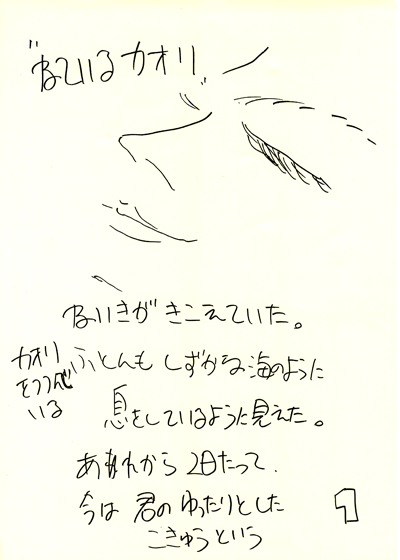 "ねているカオリ"
ねいきが きこえていた。
カオリ
をつつんで
いる
ふとんも しずかな海のように
息をしているように見えた。
あれから 2日たって、
今は 君の ゆったりとした
こきゅうという
1